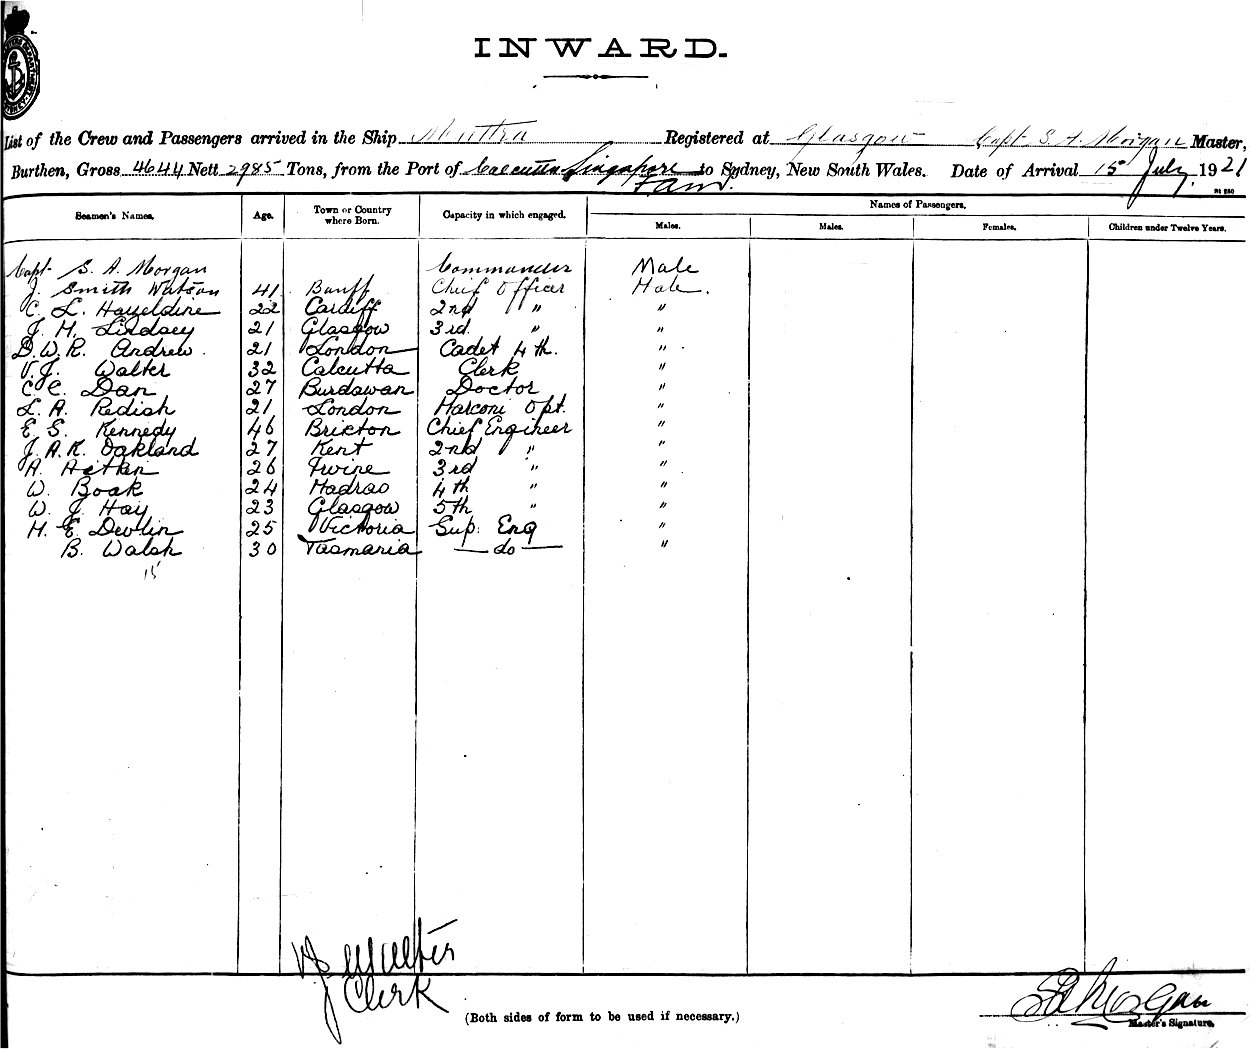 INWARD.
List of the Crew and Passengers arrived in the Ship Muttra Registered at Glasgow Capt S. A. Morgan Master,
Burthen, Gross 4644 Nett 2985 Tons, from the Port of Calcutta Singapore to Sydney, New South Wales. Date of Arrival 15 July, 1921
Seamen's Names. Age. Town or Country where Born. Capacity in which engaged. Names of Passengers.
Males. Males. Females. Children under Twelve Years.
Capt S. A. Morgan Commander Male
J. Smith Watson 41 Banff Chief Officer Male.
C. L. Hazeldine 22 Cardiff 2nd " "
J. H. Lindsay 21 Glasgow 3rd. " "
D. W. R. Andrew. 21 London Cadet 4th. "
V. J. Walter 32 Calcutta Clerk "
C. C. Dan 27 Burdawan Doctor "
L. A. Redish 21 London Marconi Opt. "
E S. Kennedy 46 Brixton Chief Engineer "
J. A. K. Oakland 27 Kent 2nd " "
A. Aitken 26 Irvine 3rd " "
W. Boak 24 Madras 4th " "
W. J. Hay 23 Glasgow 5th " "
H. E. Devlin 25 Victoria Sup. Eng "
B. Walsh 30 Tasmania — do — "
15
V J Walter
Clerk
S A Morgan
(Both sides of form to be used if necessary.)
Master's Signature.